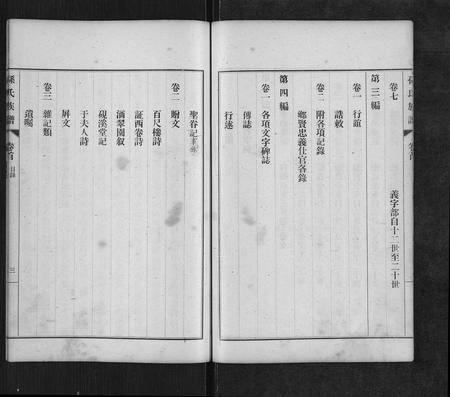 卷七
義字部自十二世至二十世
第三編
卷一 行誼
誥敕
卷二 附各項記錄
鄉賢忠義仕官各錄
第四編
卷一 各項文字碑誌
傳誌
行述
聖眷記
卷二 贈文
百尺樓詩
証西卷詩
涵翠園叙
硯溪堂記
于夫人詩
屏文
卷三 雜記類
遺囑
孫氏族譜 卷首 目錄 三